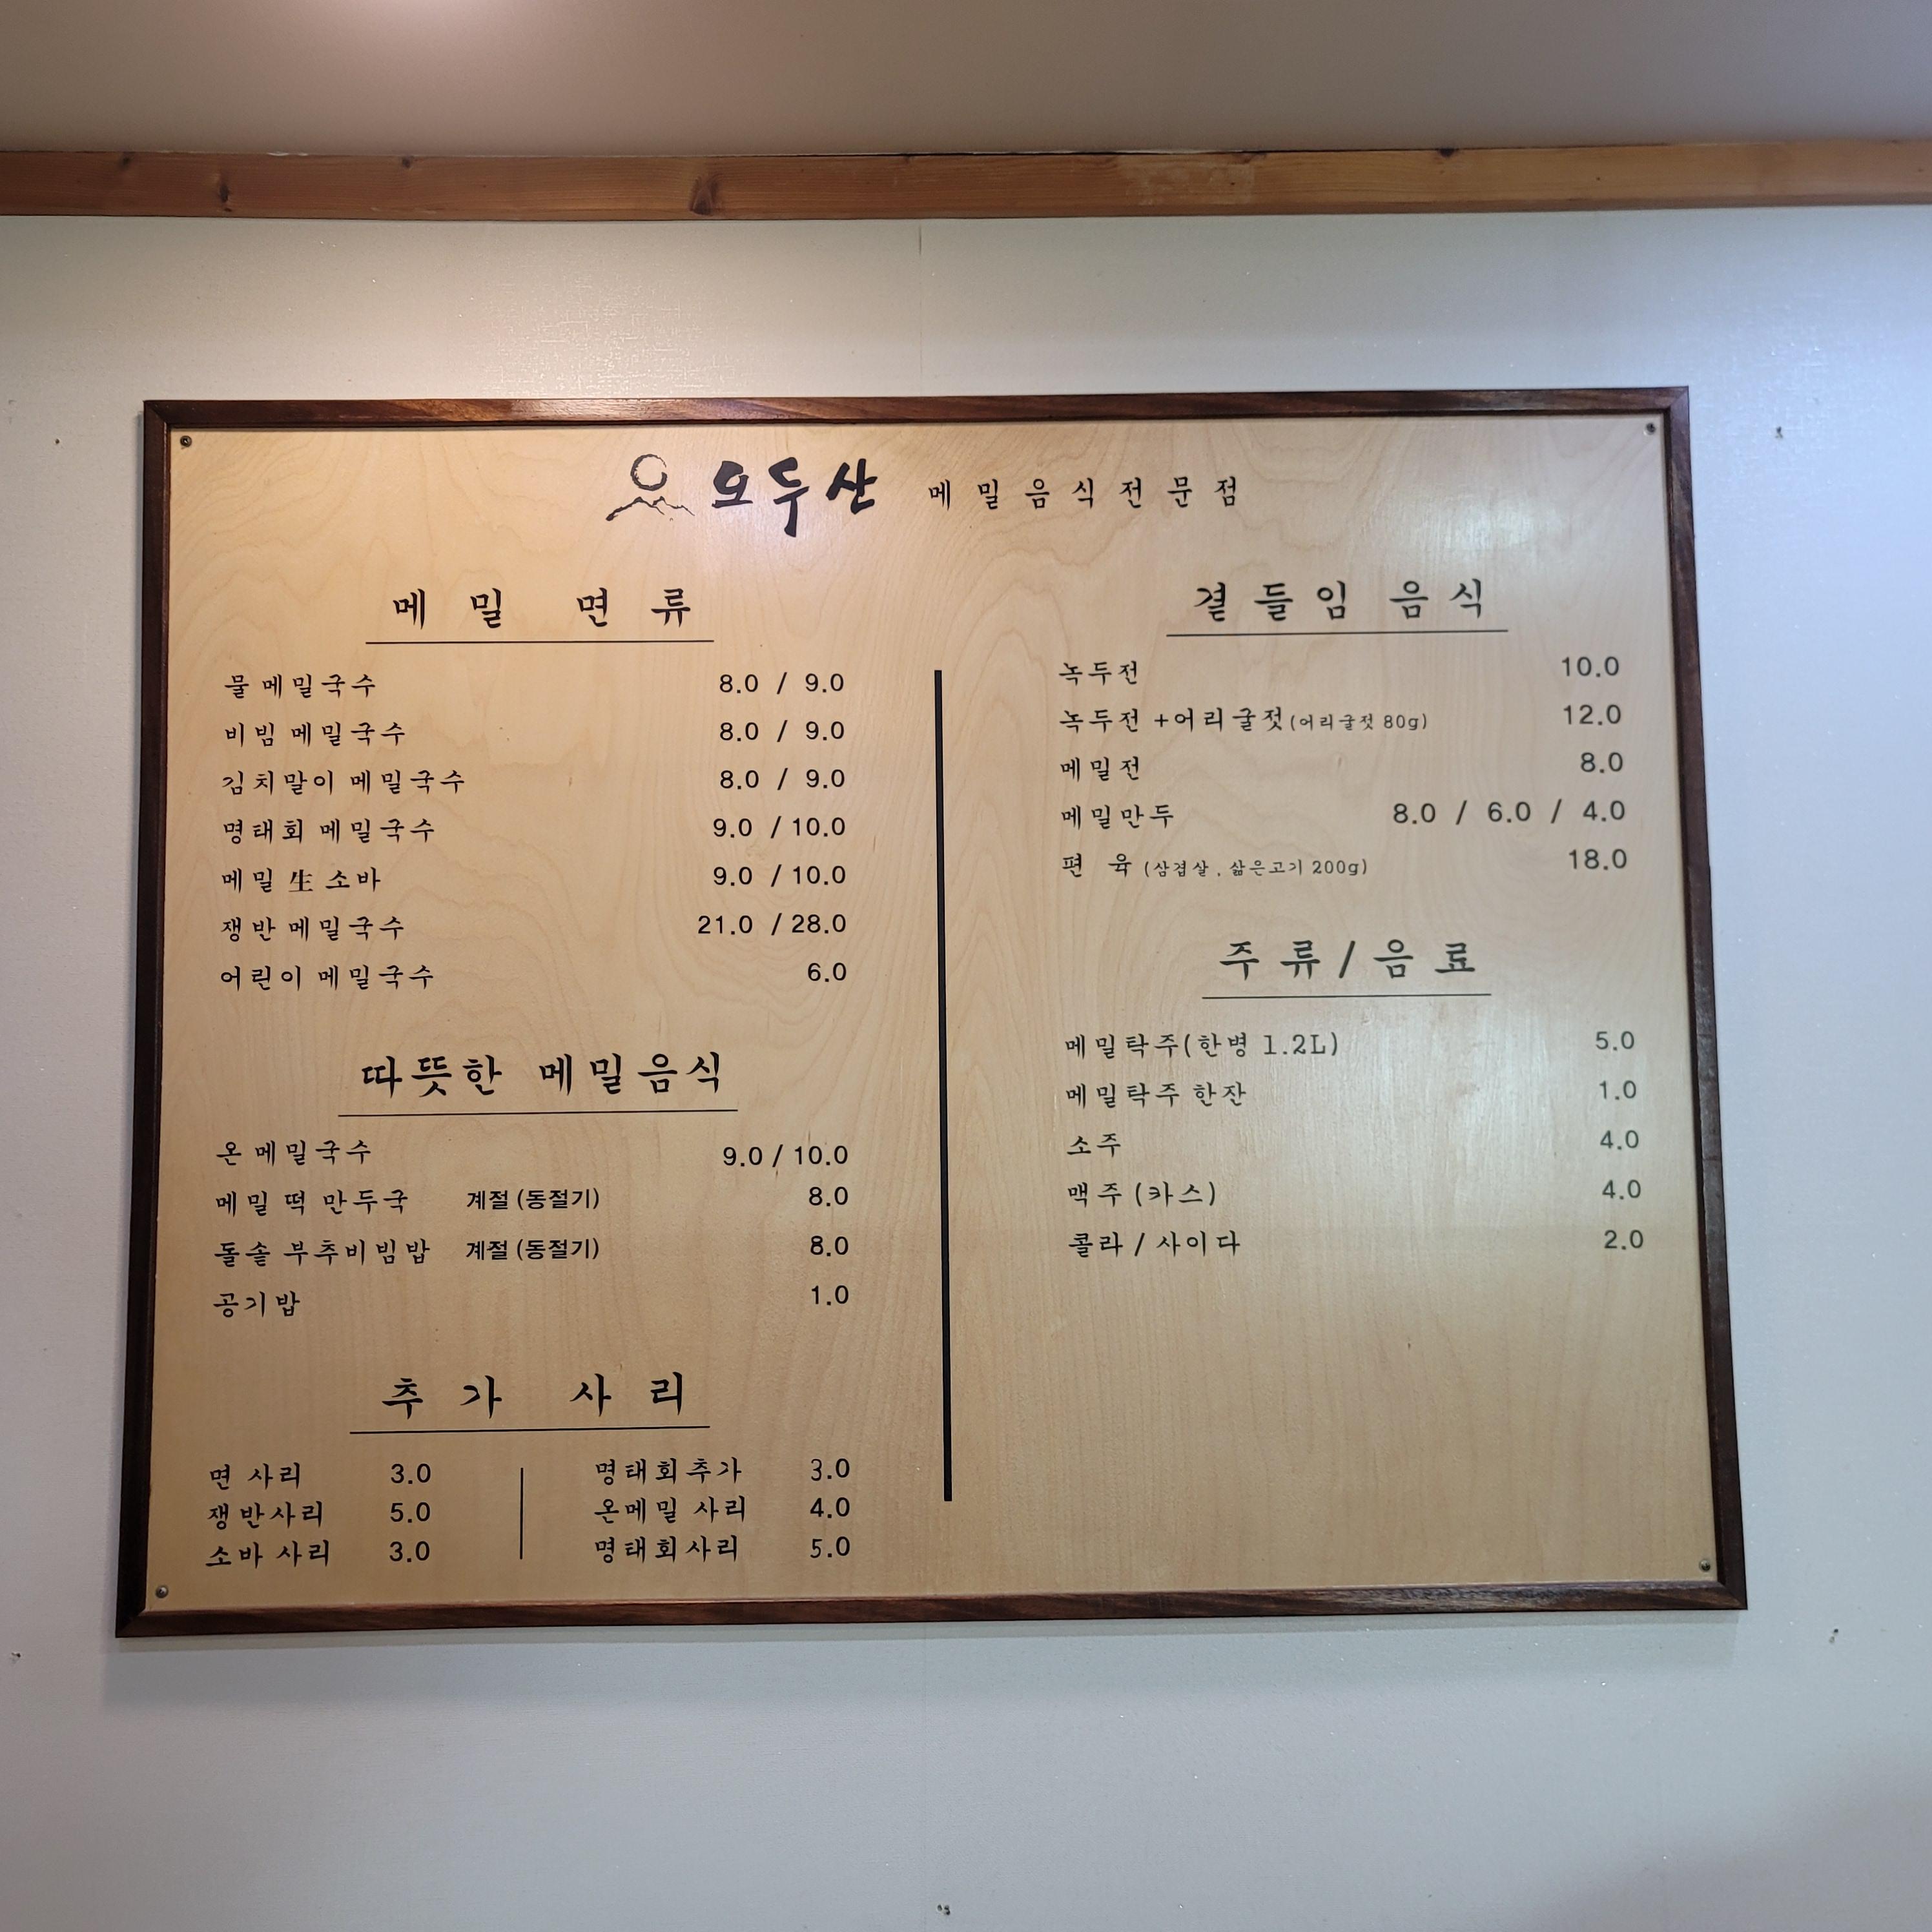 오두산 메밀음식전문점
메밀 면류
물 메밀국수 8.0 / 9.0
비빔 메밀국수 8.0 / 9.0
김치말이 메밀국수 8.0 / 9.0
명태회 메밀국수 9.0 / 10.0
메밀 生 소바 9.0 / 10.0
쟁반 메밀국수 21.0 / 28.0
어린이 메밀국수 6.0
따뜻한 메밀음식
온 메밀국수 9.0 / 10.0
메밀 떡 만두국 계절 (동절기) 8.0
돌솥 부추비빔밥 계절 (동절기) 8.0
공기밥 1.0
추가 사리
면 사리 3.0
쟁반사리 5.0
소바 사리 3.0
명태회추가 3.0
온메밀 사리 4.0
명태회사리 5.0
곁들임 음식
녹두전 10.0
녹두전 +어리굴젓 (어리굴젓 80g) 12.0
메밀전 8.0
메밀만두 8.0 / 6.0 / 4.0
편 육 (삼겹살 . 삶은고기 200g) 18.0
주류/음료
메밀탁주(한병 1.2L) 5.0
메밀탁주 한잔 1.0
소주 4.0
맥주 (카스) 4.0
콜라 / 사이다 2.0